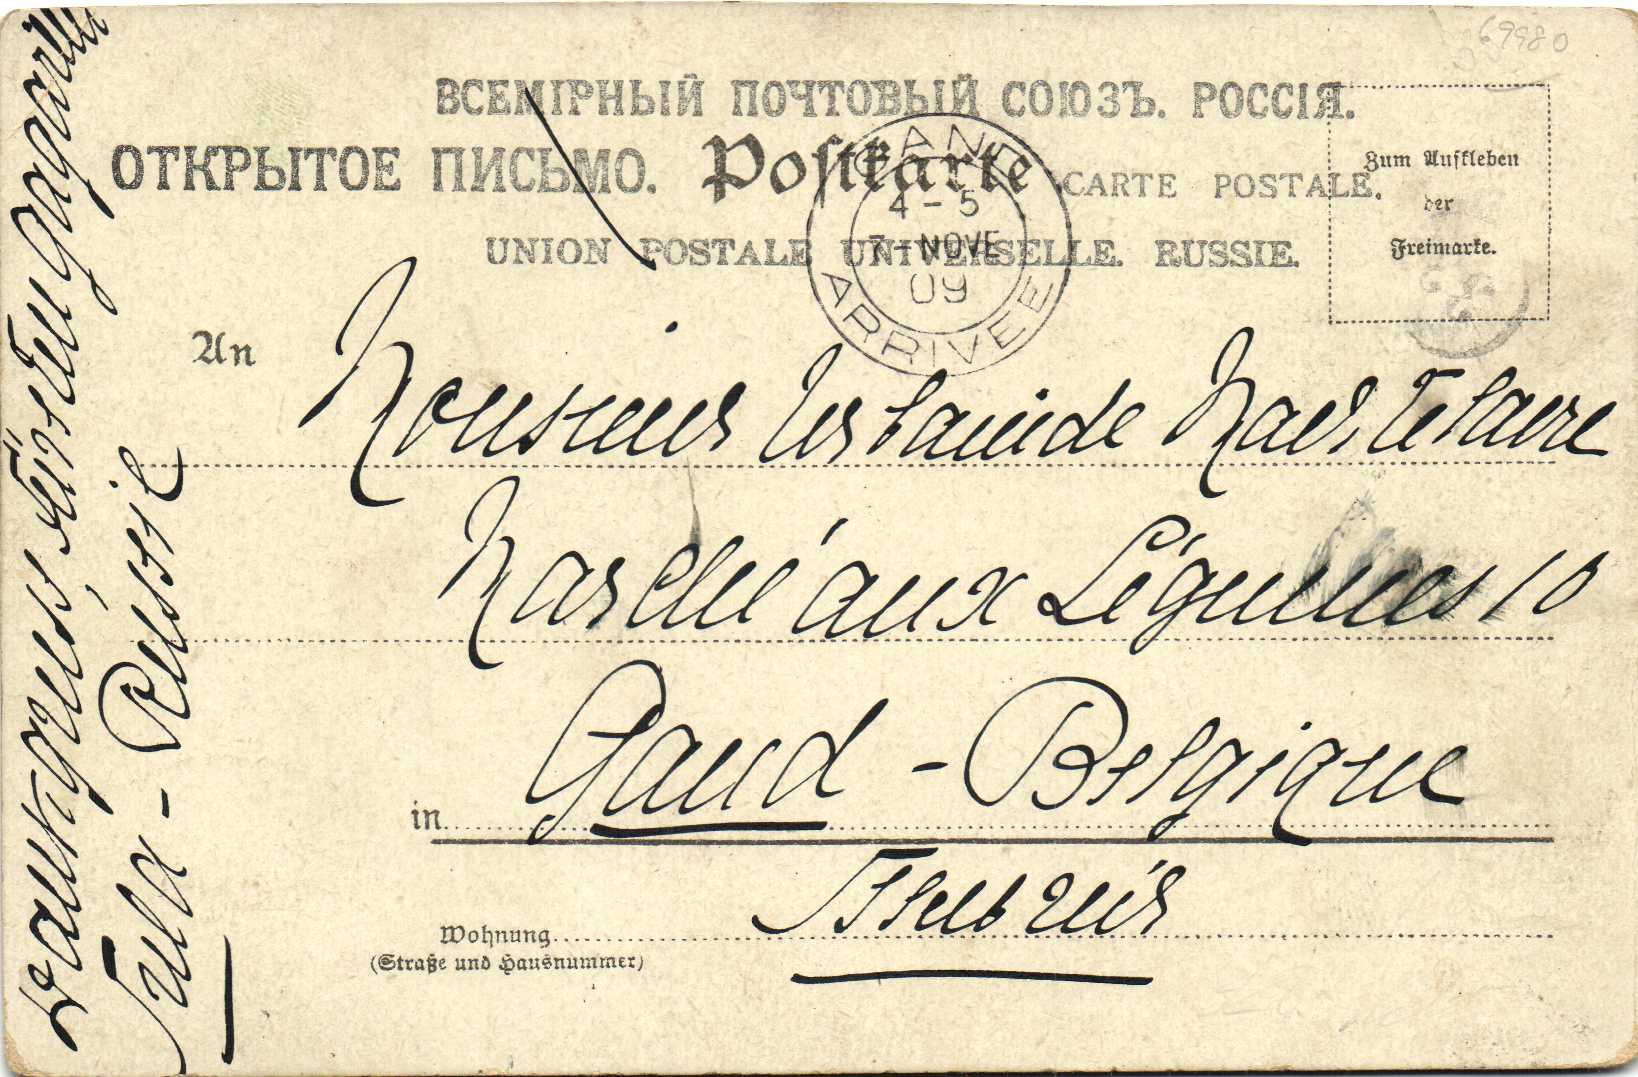 69980
ВСЕМІРНЫЙ ПОЧТОВЫЙ СОЮЗЪ. РОССІЯ.
ОТКРЫТОЕ ПИСЬМО. Postkarte CARTE POSTALE.
UNION POSTALE UNIVERSELLE. RUSSIE.
Zum Aufkleben
der
Freimarke.
GAND
4-5
7-NOVE
09
ARRIVEE
An
Monsieur
Marché aux Légumes 10
in Gand - Belgique
Wohnung
(Straße und Hausnummer)
Tula - Russie